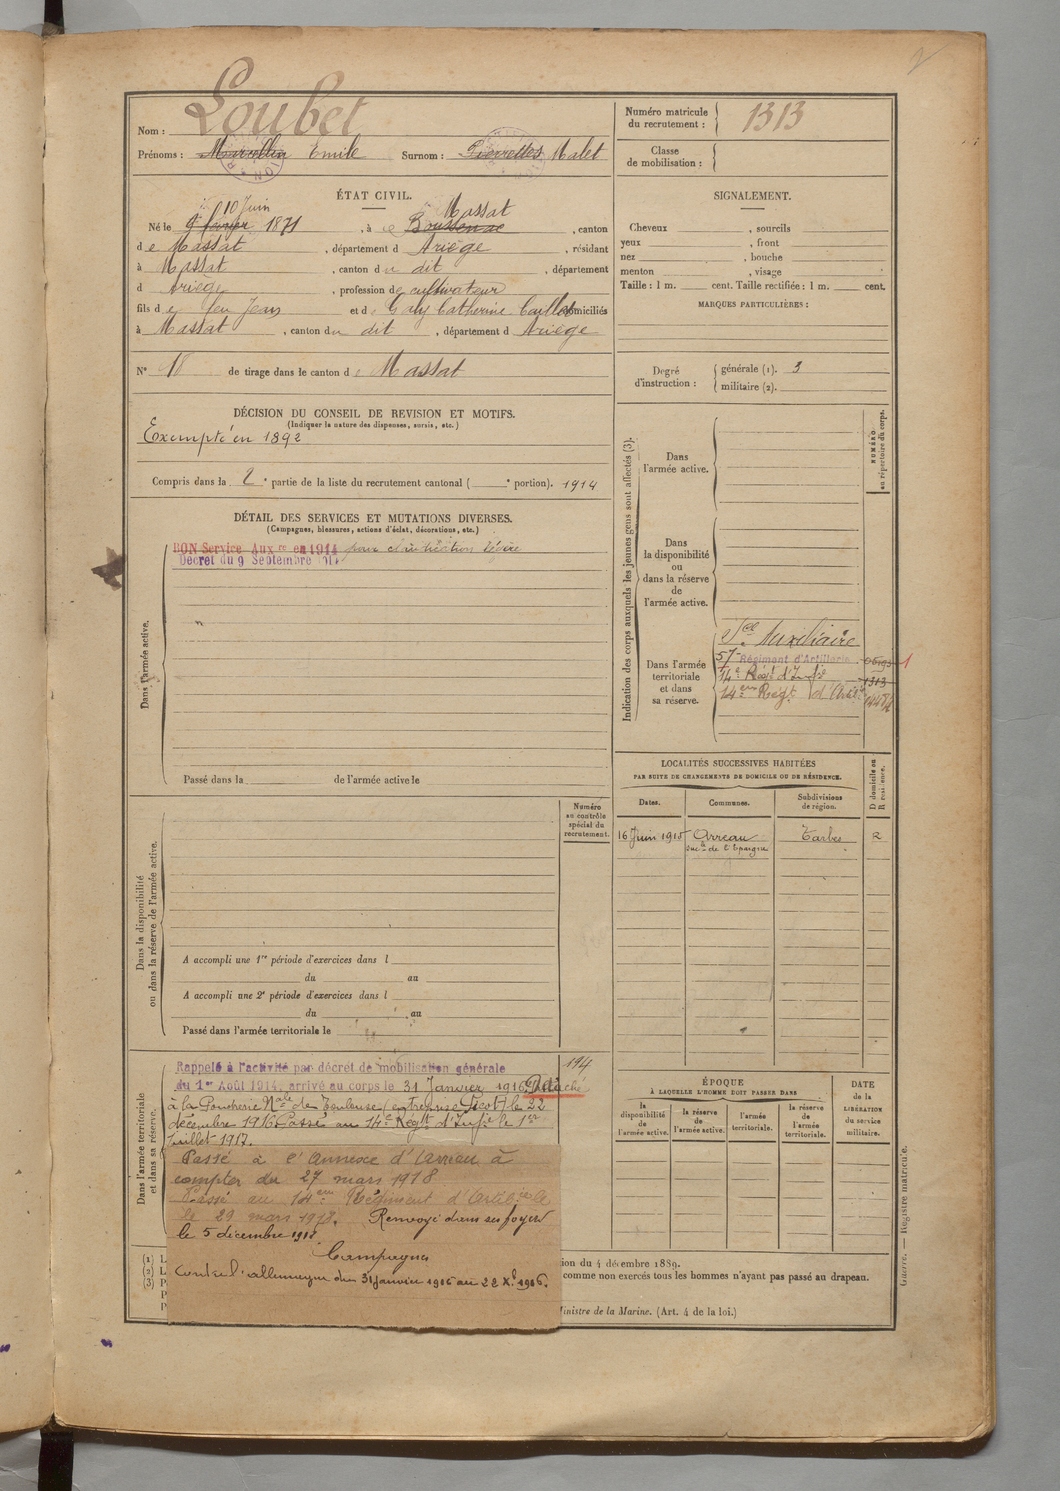 2
Nom : Loubet
Prénoms : Marcellin Emile Surnom : Pierrettes Malet
Numéro matricule du recrutement : 1313
Classe de mobilisation :
ÉTAT CIVIL.
10 Juin Massat
Né le 9 février 1871, à Boussenac, canton
de Massat, département d Ariège, résidant
à Massat, canton du dit, département
d Ariège, profession de cultivateur
fils de feu Jean et de Galy Catherine domiciliés
à Massat, canton du dit, département d Ariège
N° 18 de tirage dans le canton de Massat
SIGNALEMENT.
Cheveux , sourcils
yeux , front
nez , bouche
menton , visage
Taille : 1 m. cent. Taille rectifiée : 1 m. cent.
MARQUES PARTICULIÈRES :
Degré d'instruction : générale (1). 3
militaire (2).
DÉCISION DU CONSEIL DE REVISION ET MOTIFS.
(Indiquer la nature des dispenses, sursis, etc.)
Exempté en 1892
Compris dans la 2e partie de la liste du recrutement cantonal ( e portion). 1914
DÉTAIL DES SERVICES ET MUTATIONS DIVERSES.
(Campagnes, blessures, actions d'éclat, décorations, etc.)
Dans l'armée active.
BON Service Auxre en 1914 pour claudication légère
Décret du 9 Septembre 1914
Passé dans la de l'armée active le
Indication des corps auxquels les jeunes gens sont affectés (3).
NUMÉRO au répertoire du corps.
Dans l'armée active.
Dans la disponibilité ou dans la réserve de l'armée active.
Dans l'armée territoriale et dans sa réserve.
Sce Auxiliaire
57e Régiment d'Artillerie 1
14e Régt d'Infie 1313
14eme Régt d'Artie
LOCALITÉS SUCCESSIVES HABITÉES
PAR SUITE DE CHANGEMENTS DE DOMICILE OU DE RÉSIDENCE.
D domicile ou R résidence.
Dates. Communes. Subdivisions de région.
16 Juin 1915 Arreau Tarbes R
Dans la disponibilité ou dans la réserve de l'armée active.
Numéro au contrôle spécial du recrutement.
A accompli une 1re période d'exercices dans l
du au
A accompli une 2e période d'exercices dans l
du au
Passé dans l'armée territoriale le
Dans l'armée territoriale et dans sa réserve.
194
Rappelé à l'activité par décret de mobilisation générale
du 1er Août 1914, arrivé au corps le 31 Janvier 1916. Détaché
à la Poudrerie Nale de Toulouse (entreprise ) le 22
décembre 1916. Passé au 14e Régt d'Infie le 1er
Juillet 1917.
Passé à l'Annexe d'Arreau à
compter du 27 mars 1918
Passé au 14eme Régiment d'Artillerie
le 29 mars 1918. Renvoyé dans ses foyers
le 5 décembre 1918
Campagnes
Contre l'allemagne du 31 janvier 1916 au 22 Xe 1916.
ÉPOQUE
À LAQUELLE L'HOMME DOIT PASSER DANS
la disponibilité de l'armée active.
la réserve de l'armée active.
l'armée territoriale.
la réserve de l'armée territoriale.
DATE de la LIBÉRATION du service militaire.
(1) L
(2) L
(3) P
ion du 4 décembre 1889.
comme non exercés tous les hommes n'ayant pas passé au drapeau.
Ministre de la Marine. (Art. 4 de la loi.)
Guerre. — Registre matricule.